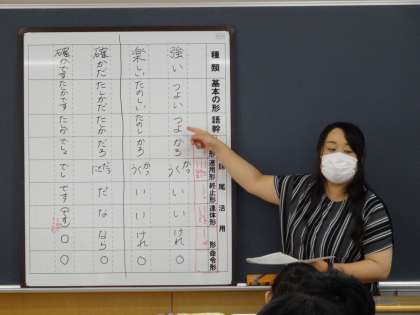 種類 基本の形 語幹 語尾活用
未然形 連用形 終止形 連体形 仮定形 命令形
強い つよい つよ かろ かっ く う い い けれ ○
楽しい たのしい たのし かろ かっ く う い い けれ ○
確かだ たしかだ たしか だろ だっ で に だ な なら ○
確かです たしかです たしか でしょ でし です (です) ○ ○